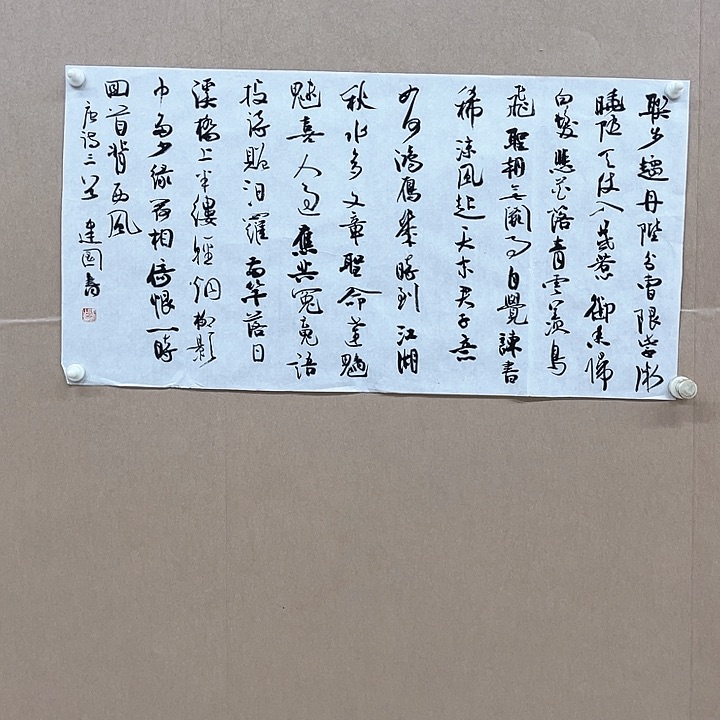 聯步趨丹陛分曹限紫微
曉隨天仗入暮惹御香歸
白髮悲花落青雲羨鳥
飛聖朝無闕事自覺諫書
稀涼風起天末君子意
如何鴻雁幾時到江湖
秋水多文章憎命達魑
魅喜人過應共冤魂語
投詩贈汨羅兩竿落日
溪橋上半縷輕煙柳影
中多少綠荷相倚恨一時
回首背西風
唐詩三首建國書